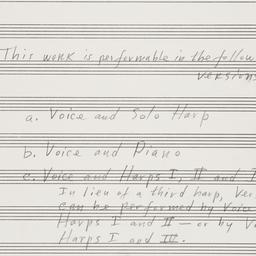 This work is performable in the follow
versions
a. Voice and Solo Harp
b. Voice and Piano
c. Voice and Harps I, II and I
In lieu of a third harp, Ver
can be performed by Voice
Harps I and II — or by V
Harps I and III.